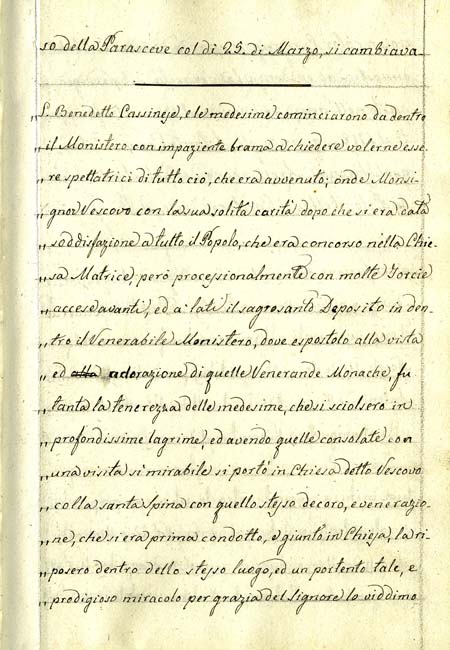 so della Parasceve col di 25. di Marzo, si cambiava
„ S. Benedetto Cassinese, e le medesime cominciarono da dentro
„ il Monistero con impaziente brama a chiedere volerne esse-
„ re spettatrici di tutto ciò, che era avvenuto; onde Monsi-
„ gnor Vescovo con la sua solita carità dopo che si era data
„ soddisfazione a tutto il Popolo, che era concorso nella Chie-
„ sa Matrice, però processionalmente con molte Torcie
„ accese avanti, ed a' lati il sagrosanto Deposito in den-
„ tro il Venerabile Monistero, dove espostolo alla vista
„ ed alla adorazione di quelle Venerande Monache, fu
„ tanta la tenerezza delle medesime, che si sciolsero in
„ profondissime lagrime, ed avendo quelle consolate con
„ una visita sì mirabile si portò in Chiesa detto Vescovo
„ colla santa Spina con quello stesso decoro, e venerazio-
„ ne, che si era prima condotto, e giunto in Chiesa, la ri-
„ posero dentro dello stesso luogo, ed un portento tale, e
„ prodigioso miracolo per grazia del Signore lo viddimo